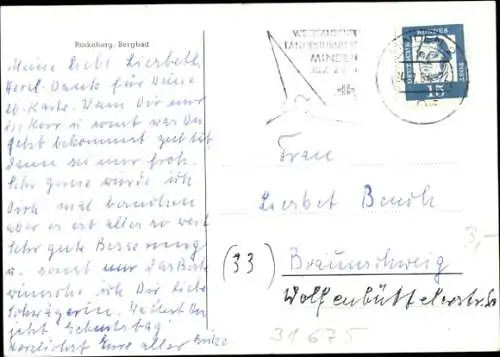 Bückeburg, Bergbad
Meine liebe Liesbeth
Herzl. Dank für Deine
lb. Karte. Wenn Dir nur
die Kur u. sonst was Du
jetzt bekommst gut tut
dann sei nur froh.
Sehr gerne würde ich
Dich mal besuchen
aber es ist alles so weit
Sehr gute Besserung
u. sonst nur das Beste
wünsche ich Dir liebe
Schwägerin.
jetzt Geburtstag
Herzlichst Eure alle
MINDEN
DEUTSCHE BUNDESPOST
15
Frau
Liesbet
(33) Braunschweig
Wolfenbüttelerstr.
3,-
31675